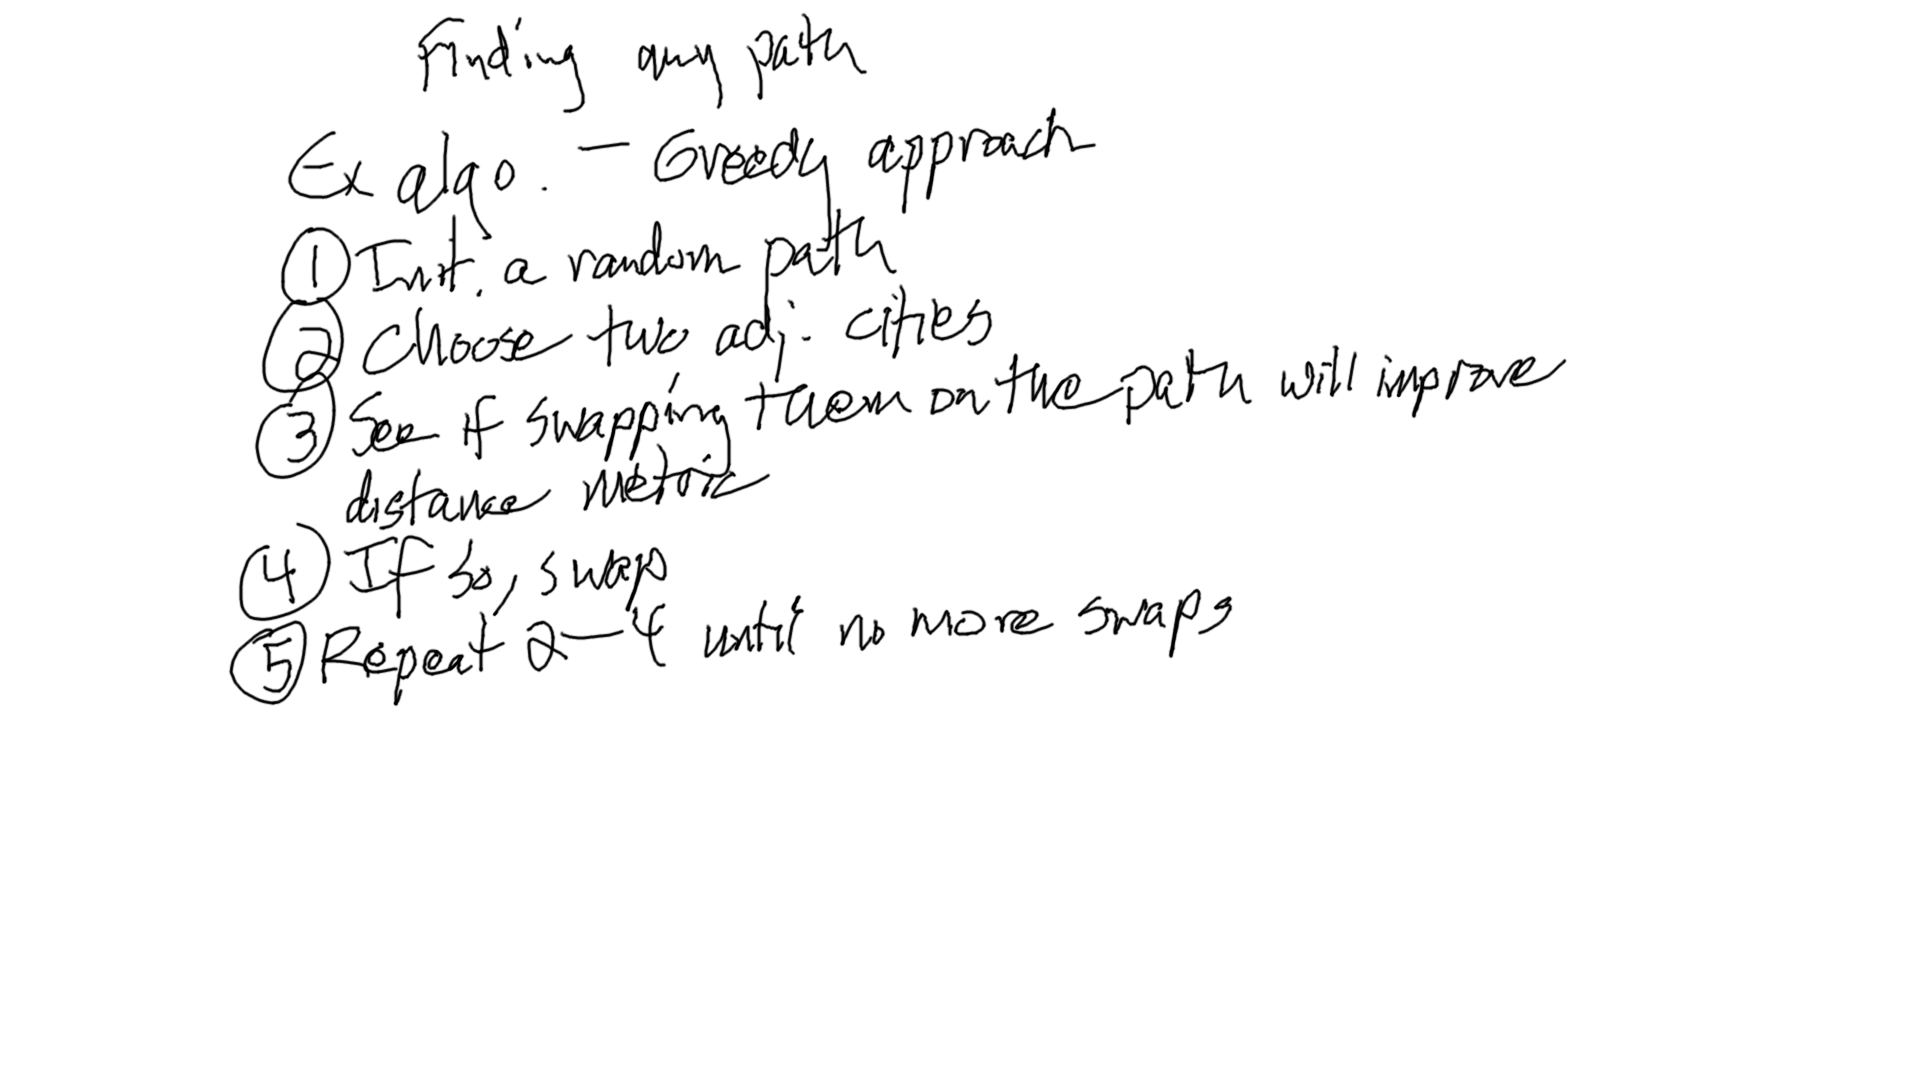 Finding any path
Ex algo. - Greedy approach
① Init. a random path
② Choose two adj. cities
③ See if swapping them on the path will improve
distance metric
④ If so, swap
⑤ Repeat 2-4 until no more swaps